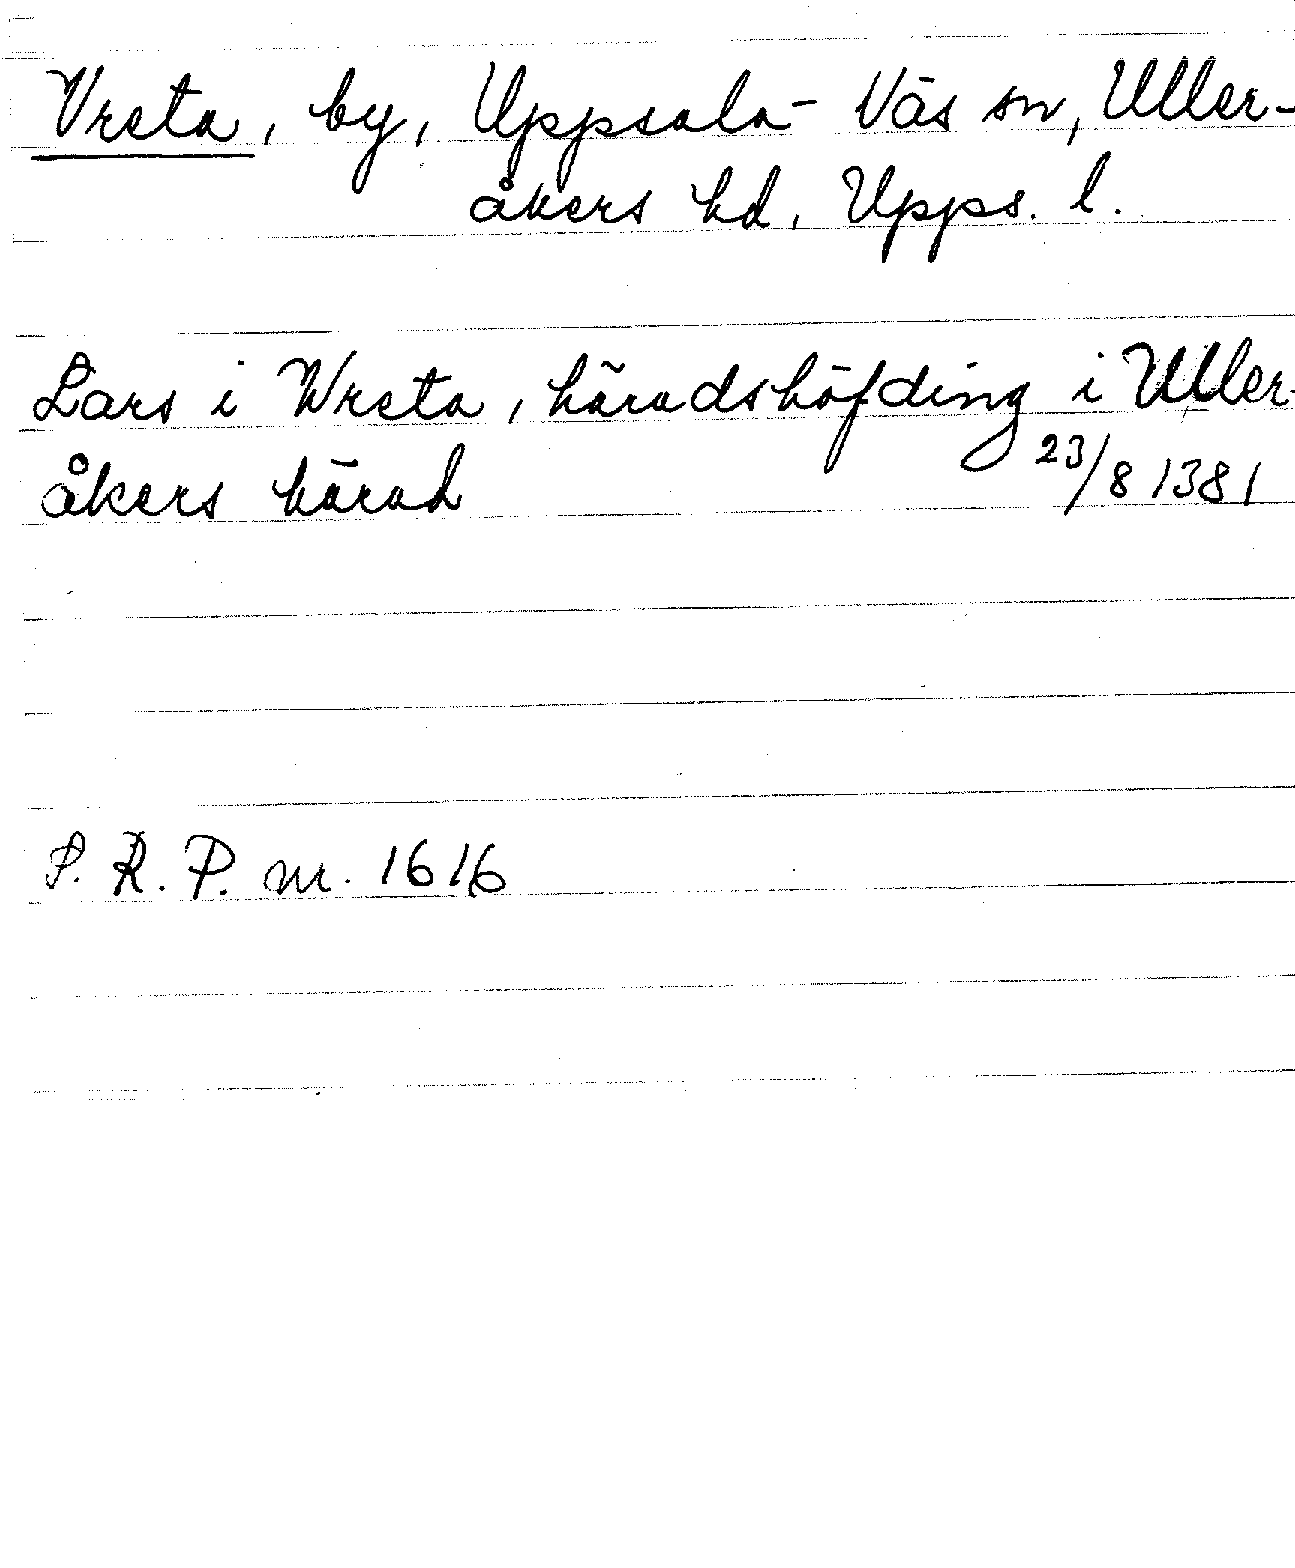 Vreta, by, Uppsala-Näs sn, Uller-
åkers hd, Upps. l.
Lars i Wreta, häradshöfding i Uller-
åkers härad 23/8 1381
S. R. P. nr. 1616